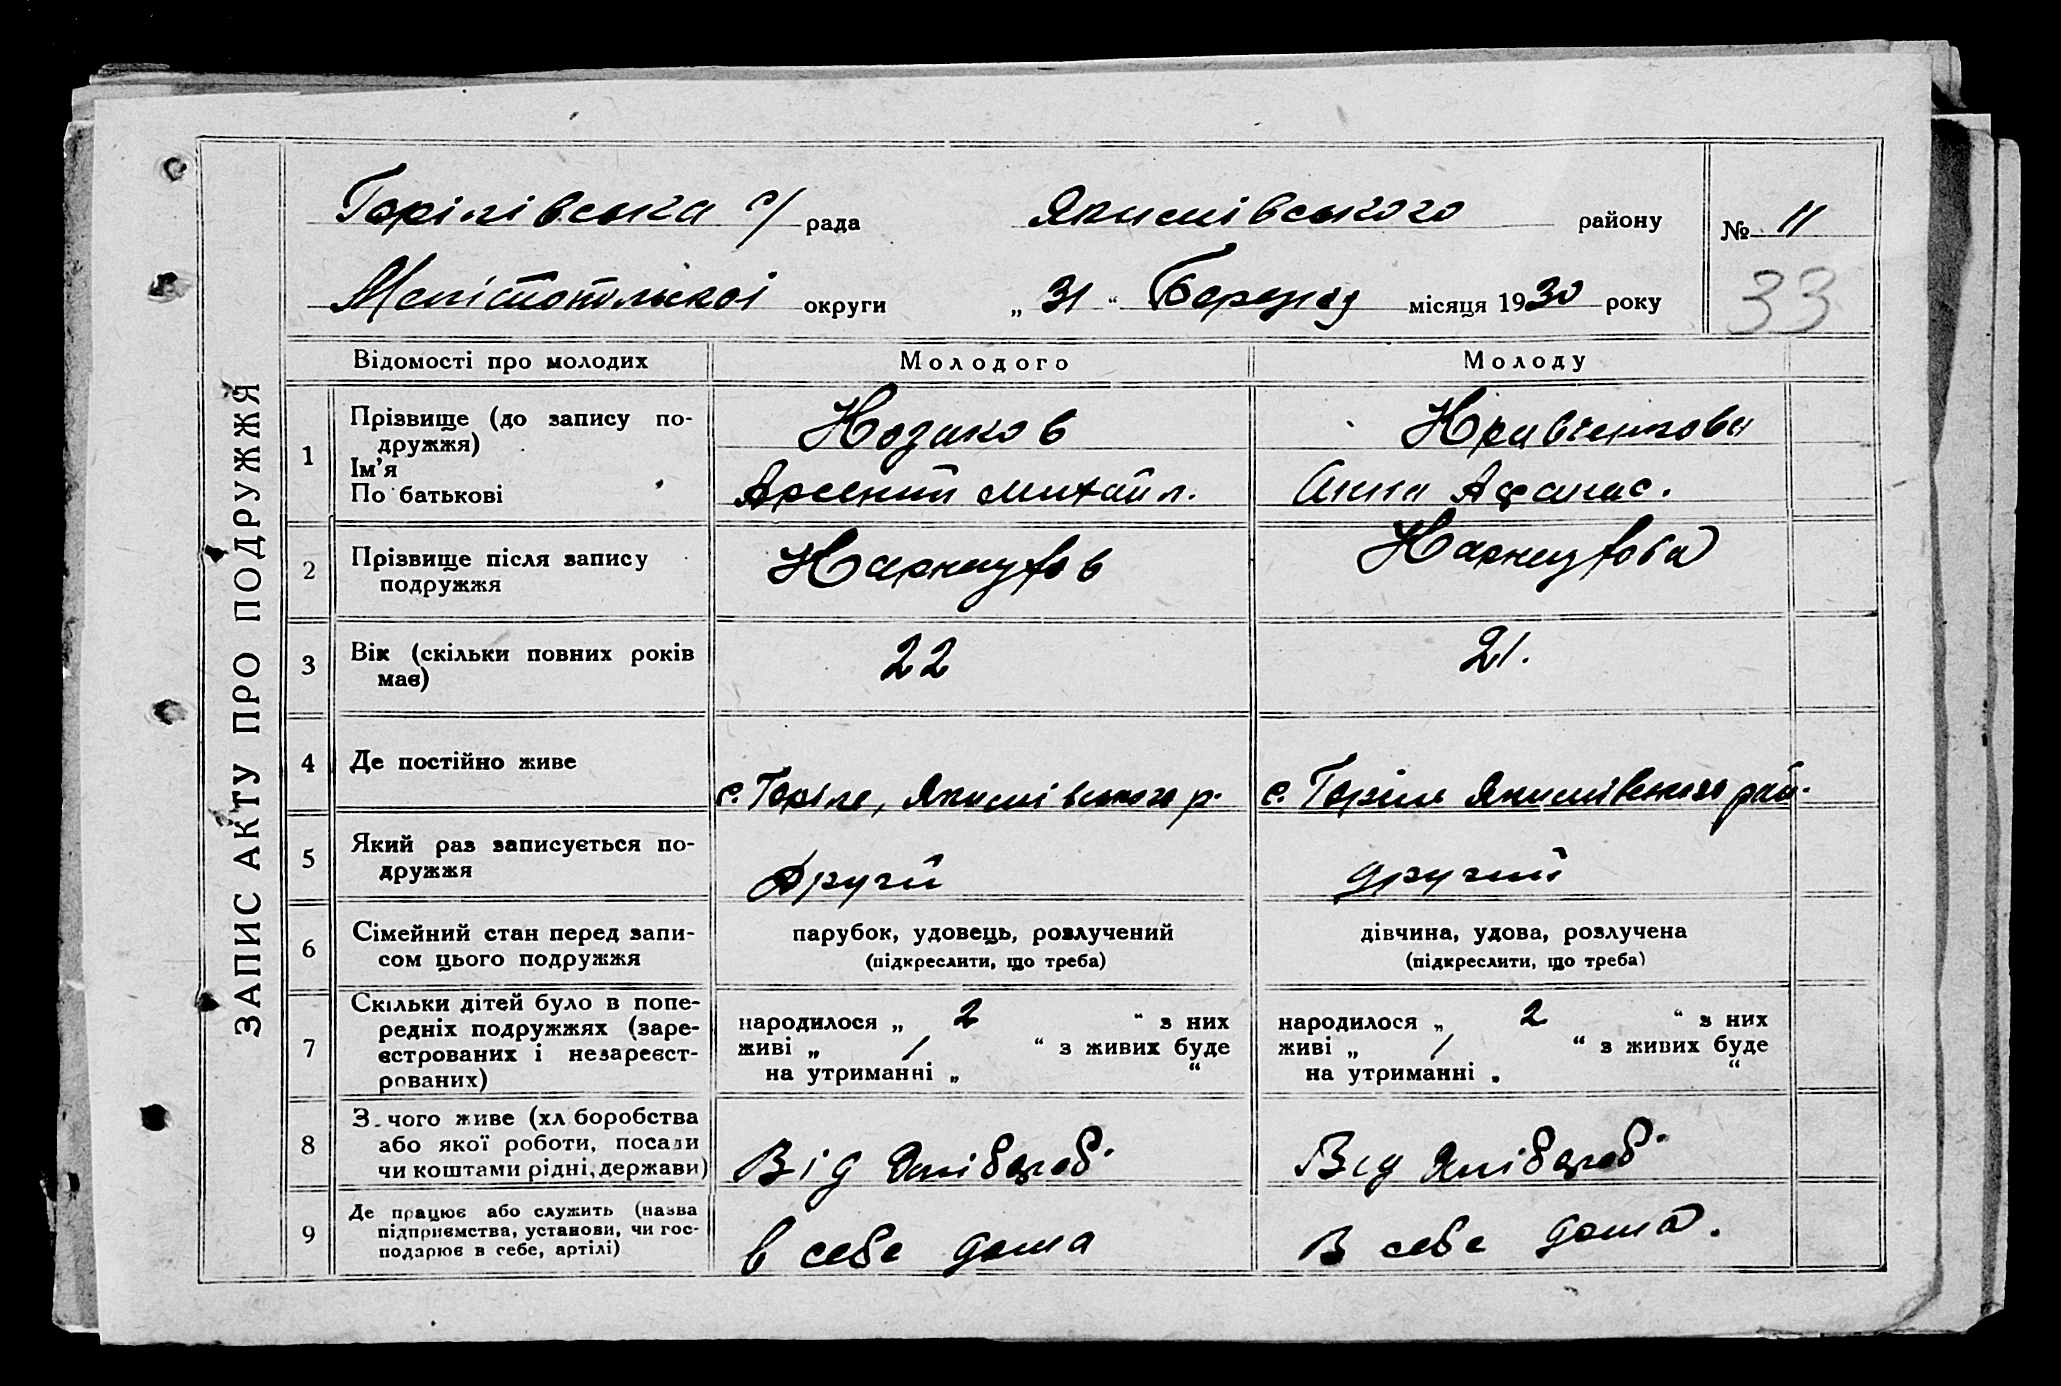 ЗАПИС АКТУ ПРО ПОДРУЖЖЯ
Горілівська с/ рада Якимівського району № 11
Мелітопольскої округи „ 31 “ Березня місяця 1930 року 33
Відомості про молодих Молодого Молоду
1 Прізвище (до запису по-
дружжя) Козаков
Ім’я
По батькові Арсений Михайл. Анна Афанас.
2 Прізвище після запису
подружжя
3 Вік (скільки повних років
має) 22 21.
4 Де постійно живе с. Горіле, Якимівського р. с. Горіле Якимівського рай.
5 Який раз записується по-
дружжя другий другий
6 Сімейний стан перед запи-
сом цього подружжя
парубок, удовець, розлучений
(підкреслити, що треба)
дівчина, удова, розлучена
(підкреслити, що треба)
7 Скільки дітей було в попе-
редніх подружжях (заре-
єстрованих і незареєст-
рованих)
народилося „ 2 “ з них
живі „ / “ з живих буде
на утриманні „ “
народилося „ 2 “ з них
живі „ / “ з живих буде
на утриманні „ “
8 З чого живе (хліборобства
або якої роботи, посади
чи коштами рідні, держави)
Від хлібороб. Від хлібороб.
9 Де працює або служить (назва
підприємства, установи, чи гос-
подарює в себе, артілі)
в себе дома В себе дома.